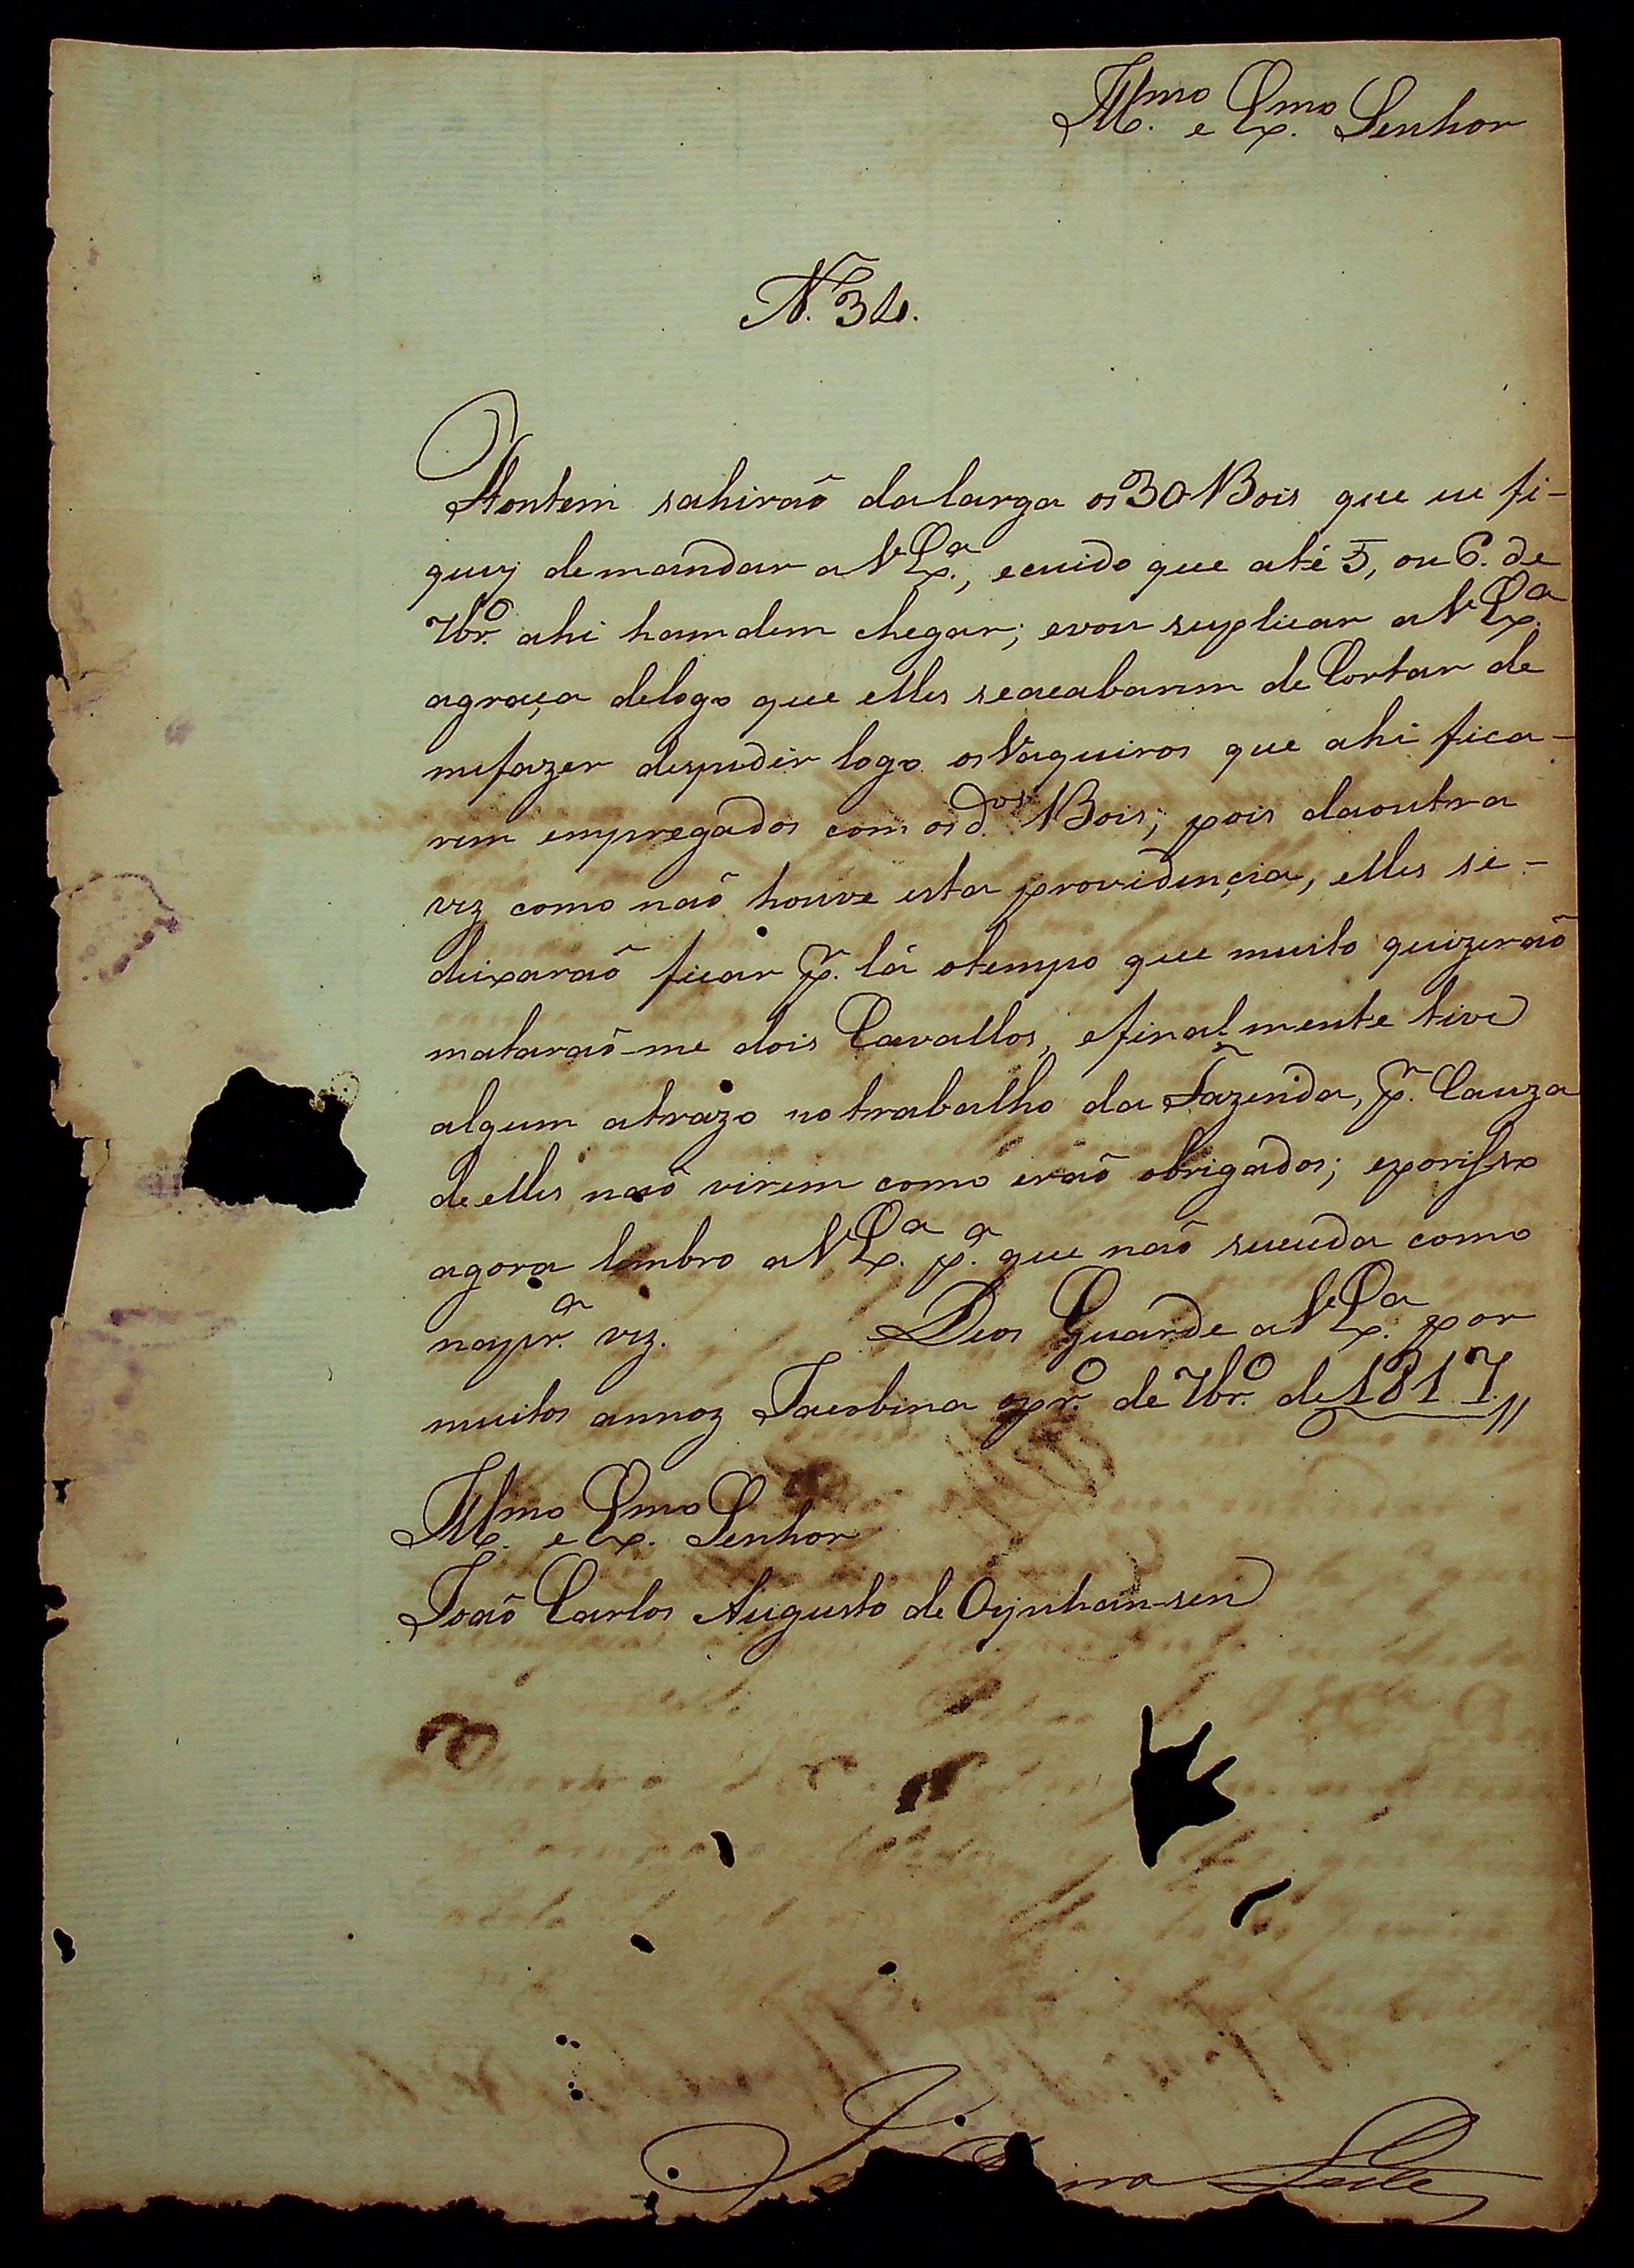 Ill.mo e Ex.mo Senhor
N.º 34.
Hontem sahiraõ dalarga os 30 Bois que eu fi-
quei demandar a V Ex.ª, ecuido que até 5, ou 6. de
7br.º ahi hamdem chegar; evou suplicar a V Ex.ª
agraça delogo que elles seacabarem de Cortar de
mefazer despedir logo osVaqueiros que ahi fica-
rem empregados com osd.os Bois; pois daoutra
vez como naõ houve esta providençia, elles se-
deixaraõ ficar p.r lá otempo que muito quizeraõ
mataraõ-me dois Cavallos, efinalmente tive
algum atrazo notrabalho da Fazenda, p.r Cauza
de elles naõ virem como eraõ obrigados; eporisso
agora lembro a V Ex.ª p.ª que naõ suceda como
napr.ª vez. Deos Guarde a V Ex.ª por
muitos annoz Jacobina opr.º de 7br.º de 1817.//
Ill.mo e Ex.mo Senhor
Joaõ Carlos Augusto de Oeynhausen
Leite